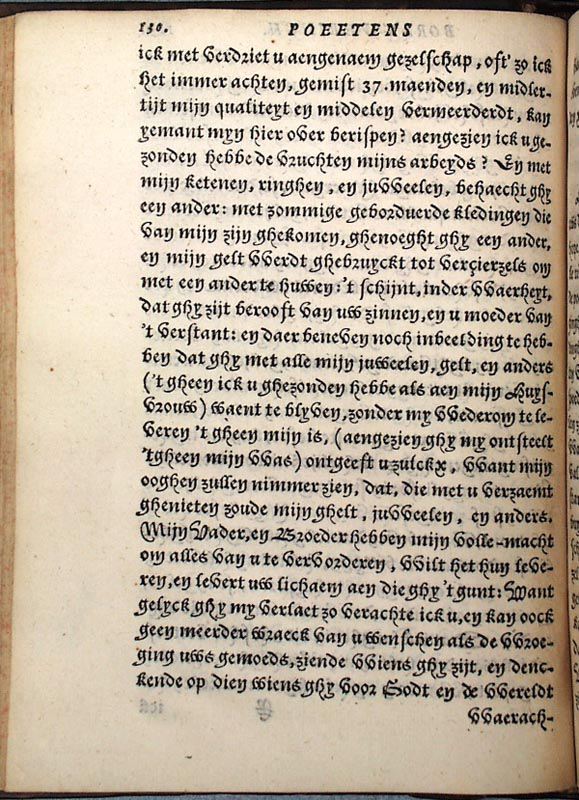 130. POEETENS
ick met verdriet u aengenaem gezelschap, oft zo ick
het immer achten, gemist 37. maenden, en midler-
tijt mijn qualiteyt en middelen vermeerderdt, kan
yemant myn hier over berispen? aengezien ick u ge-
zonden hebbe de vruchten mijns arbeyds? En met
mijn ketenen, ringhen, en juvveelen, behaecht ghy
een ander: met zommige geborduerde kledingen die
van mijn zijn ghekomen, ghenoeght ghy een ander,
en mijn gelt vverdt ghebruyckt tot verçierzels om
met een ander te huwen: 't schijnt, in der vvaerheyt,
dat ghy zijt berooft van uw zinnen, en u moeder van
't verstant: en daer beneven noch inbeelding te heb-
ben dat ghy met alle mijn juweelen, gelt, en anders
('t gheen ick u ghezonden hebbe als aen mijn Huys-
vrouw) waent te blyven, zonder my vvederom te le-
veren 't gheen mijn is, (aengezien ghy my ontsteelt
'tgheen mijn vvas) ontgeeft u zulckx, vvant mijn
ooghen zullen nimmer zien, dat, die met u verzaemt
ghenieten zoude mijn ghelt, juvveelen, en anders.
Mijn Vader, en Broeder hebben mijn volle-macht
om alles van u te vervorderen, vvilt het hun leve-
ren, en levert uw lichaem aen die ghy 't gunt: Want
gelyck ghy my verlaet zo verachte ick u, en kan oock
geen meerder wraeck van u wenschen als de vvroe-
ging uws gemoeds, ziende vviens ghy zijt, en denc-
kende op dien wiens ghy voor Godt en de vvereldt
vvaerach-